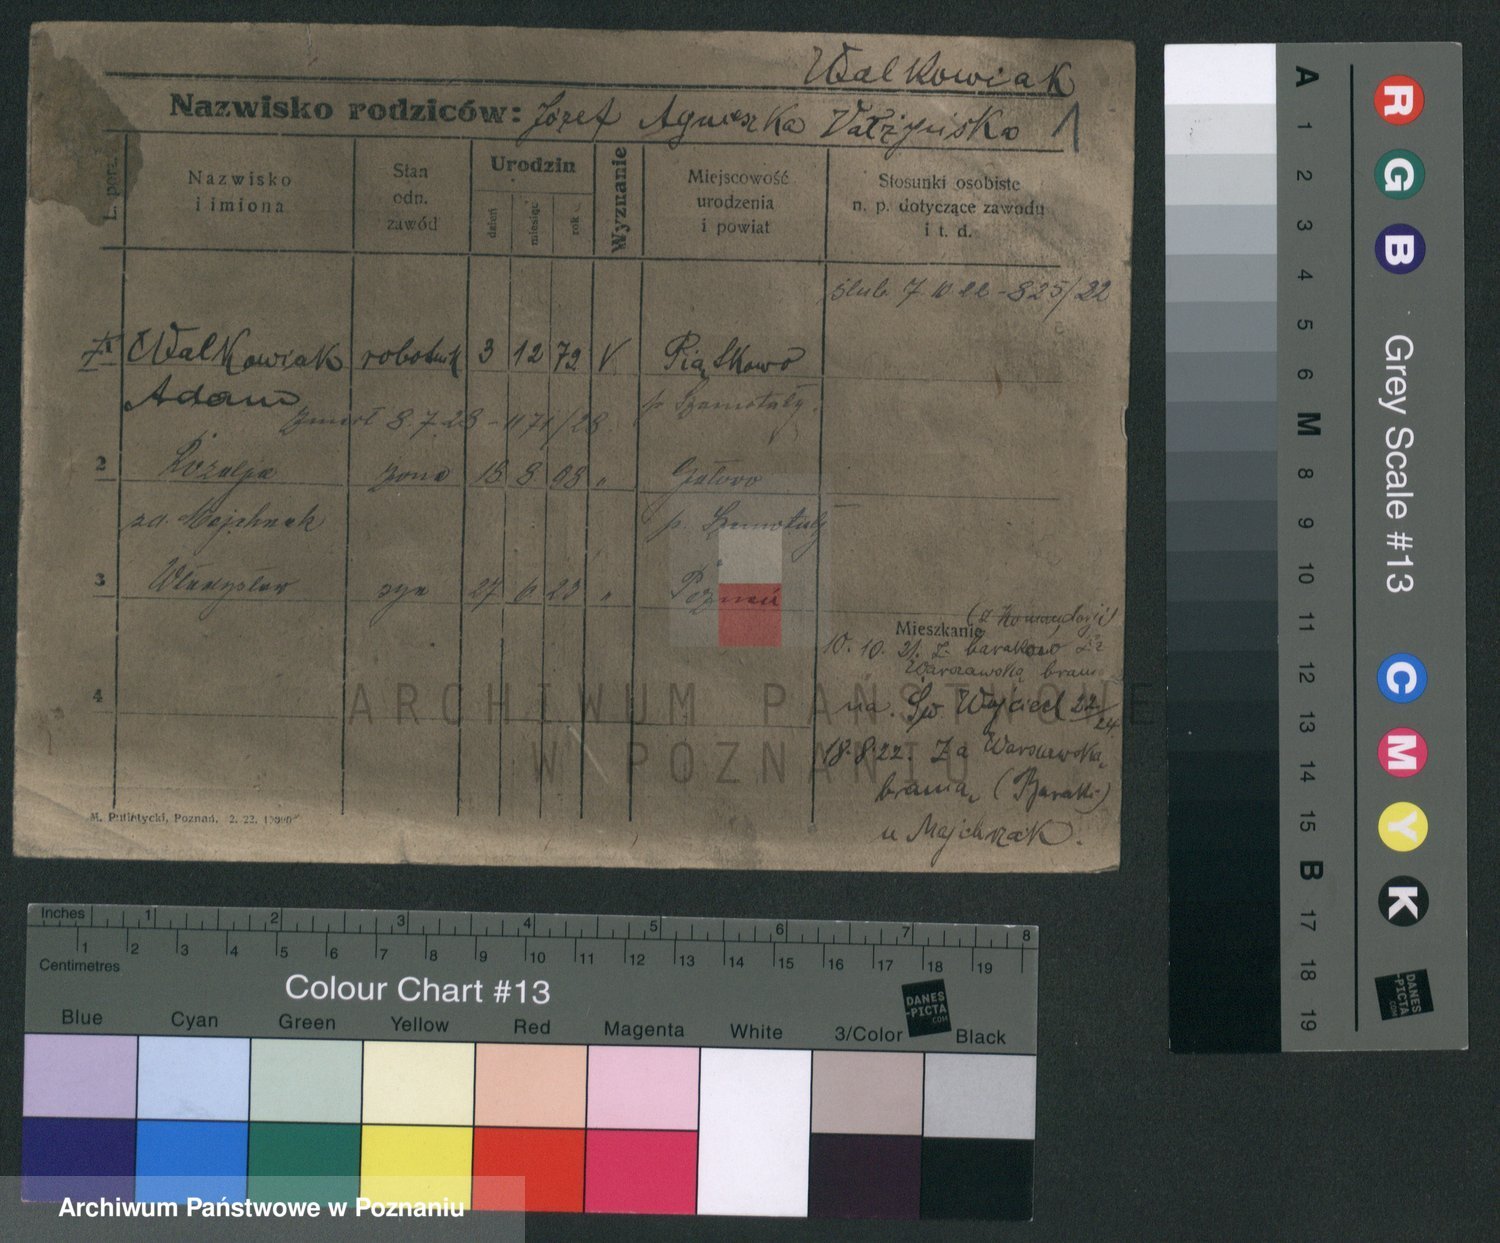 Walkowiak
Nazwisko rodziców: Józef Agnieszka 1
L. porz.
Nazwisko
i imiona
Stan
odn.
zawód
Urodzin
dzień
miesiąc
rok
Wyznanie
Miejscowość
urodzenia
i powiat
Stosunki osobiste
n. p. dotyczące zawodu
i t. d.
ślub 7 10 22 - 825/22
1 Walkowiak robotnik 3 12 72 Piątkowo
Adam p. Szamotuły
zmarł 8.7.28 - 1171/28
2 Rozalja żona 18 8 98 „
za. Majchrzak p. Szamotuły
3 Władysław syn 27 6 23 „ Poznań
(z Komandorji)
Mieszkanie
10. 10. 21. z barakowo
Warszawską bramą
4
na Św Wojciech 22/24
18.8.22. Za Warszawską
bramą (Baraki)
u Majchrzak.
M. Putiatycki, Poznań. 2. 22.
ARCHIWUM PAŃSTWOWE
W POZNANIU
A 1 2 3 4 5 6 M 8 9 10 11 12 13 14 15 B 17 18 19
R G B
Grey Scale #13
C M Y K
DANES
-PICTA
.COM
Inches 1 2 3 4 5 6 7 8
1 2 3 4 5 6 7 8 9 10 11 12 13 14 15 16 17 18 19
Centimetres
Colour Chart #13
DANES
-PICTA
.COM
Blue Cyan Green Yellow Red Magenta White 3/Color Black
Archiwum Państwowe w Poznaniu